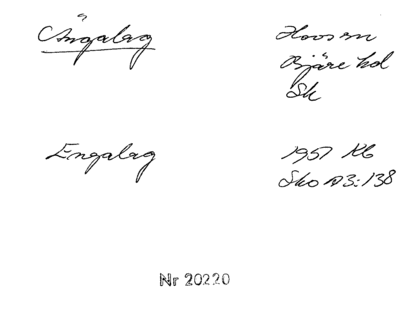 Ängalag
Hovs sn
Bjäre hd
Sk
Engalag
Kb
Sko A3:138
Nr 20220